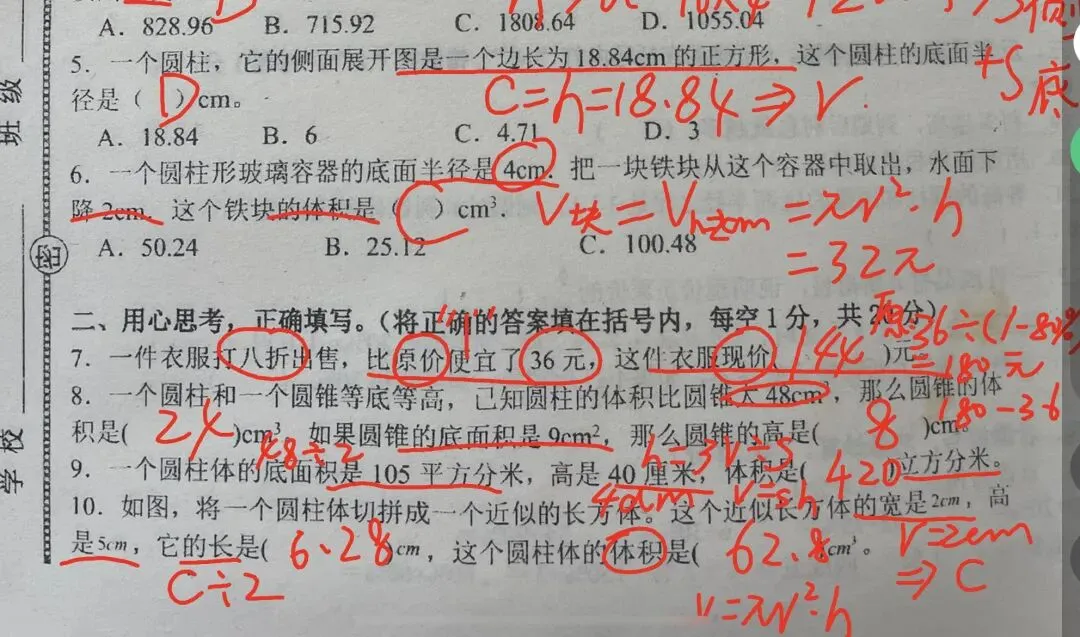 A. 828.96 B. 715.92 C. 1808.64 D. 1055.04
5. 一个圆柱，它的侧面展开图是一个边长为18.84cm的正方形，这个圆柱的底面半
+S底
径是（ D ）cm。 C=h=18.84⇒r
A. 18.84 B. 6 C. 4.71 D. 3
6. 一个圆柱形玻璃容器的底面半径是4cm. 把一块铁块从这个容器中取出，水面下
降2cm. 这个铁块的体积是（ C ）cm³. V块=Vh2cm=πr²·h
A. 50.24 B. 25.12 C. 100.48
=32π
二、用心思考，正确填写。（将正确的答案填在括号内，每空1分，共2 分）
7. 一件衣服打八折出售，比原价便宜了36元，这件衣服现价( 144 )元。
原:36÷(1-80%)
=180元
180-36
8. 一个圆柱和一个圆锥等底等高，已知圆柱的体积比圆锥大48cm³，那么圆锥的体
积是( 24 )cm³ 如果圆锥的底面积是9cm²，那么圆锥的高是( 8 )cm
48÷2 h=3V÷S
9. 一个圆柱体的底面积是105平方分米，高是40厘米，体积是( 420 )立方分米。
4dm V=sh
10. 如图，将一个圆柱体切拼成一个近似的长方体。这个近似长方体的宽是2cm，高
是5cm，它的长是( 6.28 )cm，这个圆柱体的体积是( 62.8 cm³。 r=2cm
C÷2 ⇒C
V=πr²·h
班级
密
学校